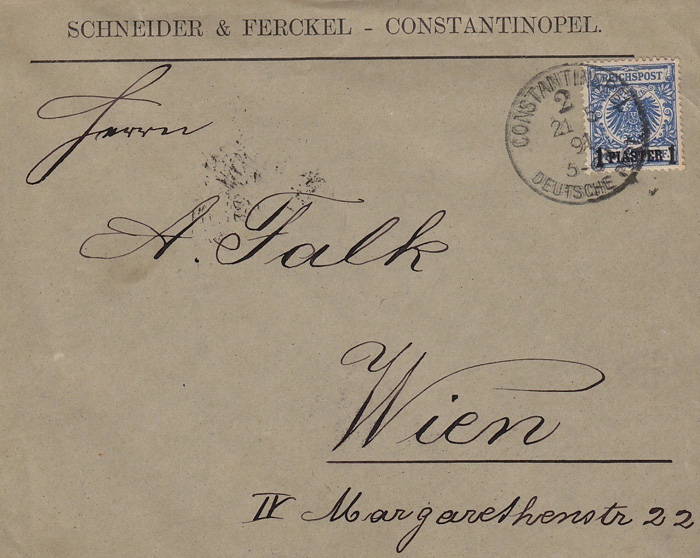 SCHNEIDER & FERCKEL - CONSTANTINOPEL.
REICHSPOST
CONSTANTINOPEL
2
21
5-
DEUTSCHE
1 PIASTER 1
Herrn
A. Falk
Wien
IV Margarethenstr 22